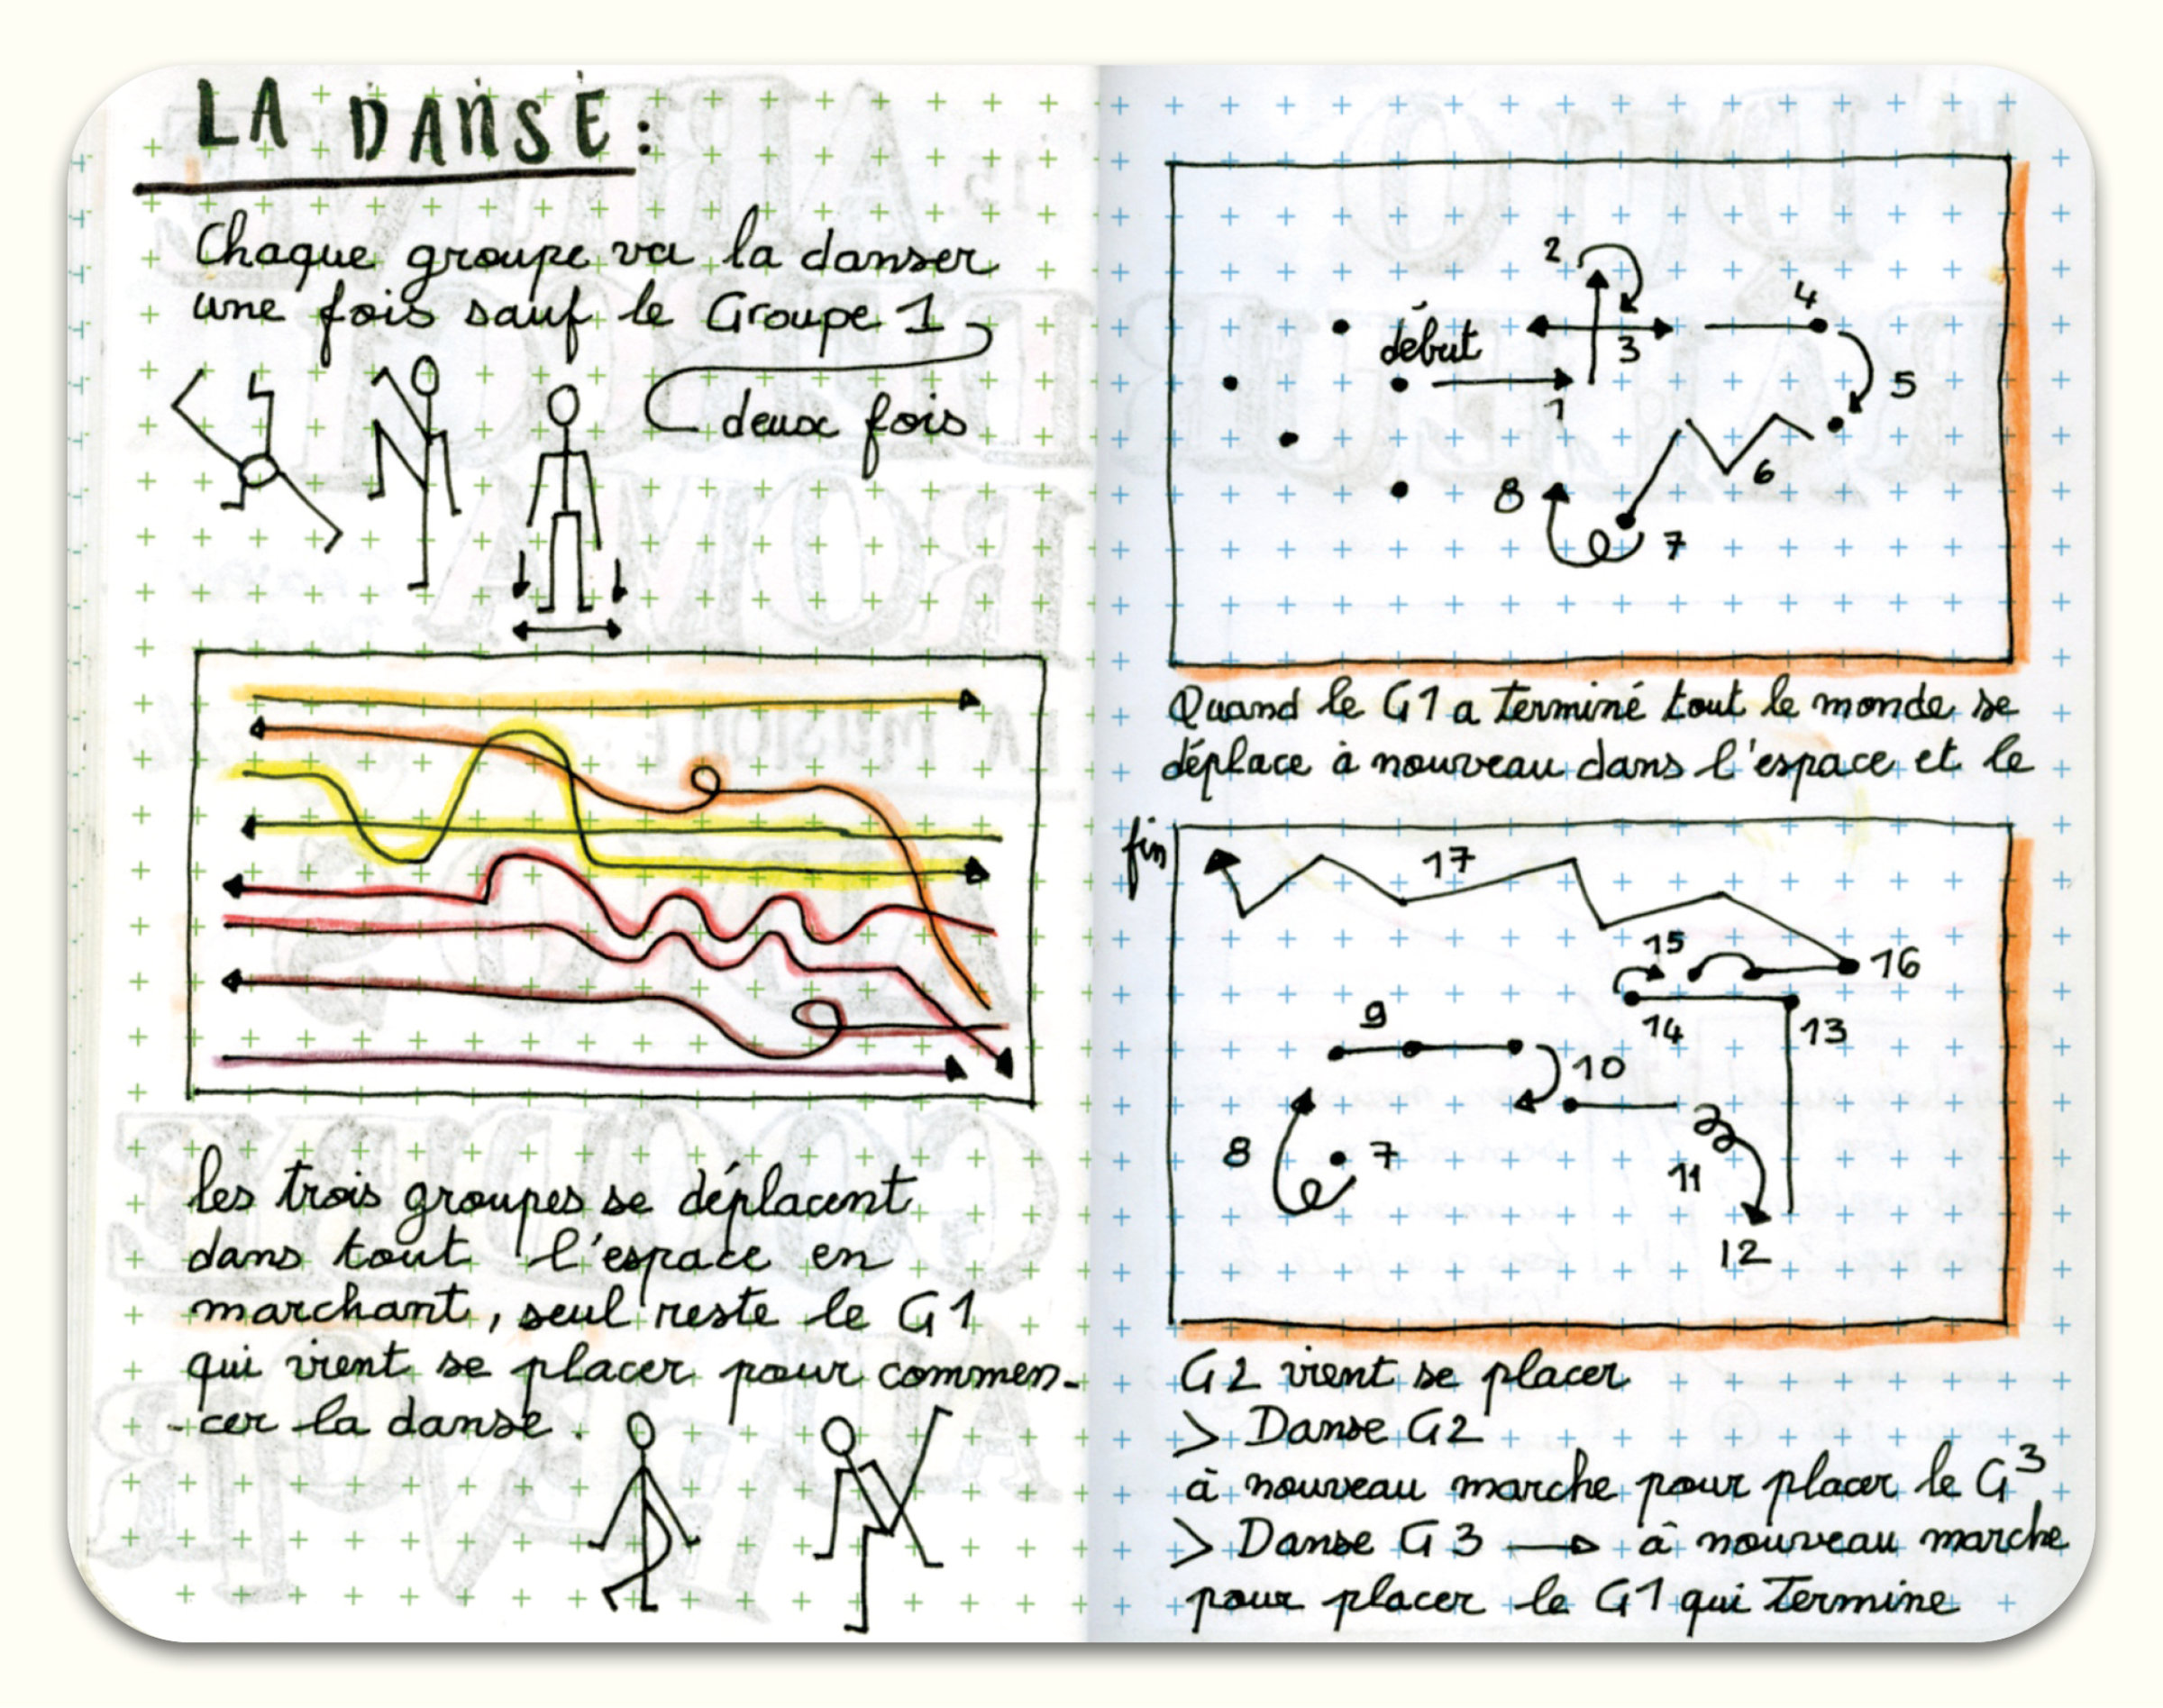 LA DANSE :
Chaque groupe va la danser
une fois sauf le Groupe 1
deux fois
les trois groupes se déplacent
dans tout l'espace en
marchant, seul reste le G1
qui vient se placer pour commen-
-cer la danse.
2
4
début
3
5
1
6
8
7
Quand le G1 a terminé tout le monde se
déplace à nouveau dans l'espace et le
fin
17
15
16
9
14
13
10
8
7
11
12
G2 vient se placer
> Danse G2
à nouveau marche pour placer le G3
> Danse G3 → à nouveau marche
pour placer le G1 qui termine